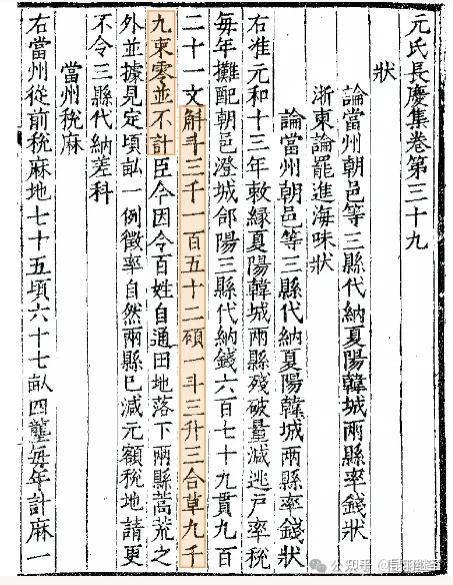 元氏長慶集卷第三十九
狀
論當州朝邑等三縣代納夏陽韓城兩縣率錢狀
浙東論罷進海味狀
論當州朝邑等三縣代納夏陽韓城兩縣率錢狀
右准元和十三年敕緣夏陽韓城兩縣殘破量減逃戶率稅
每年攤配朝邑澄城郃陽三縣代納錢六百七十九貫九百
二十一文斛斗三千一百五十二碩一斗三升三合草九千
九束零並不計臣今因令百姓自通田地落下兩縣蒿荒之
外並據見定頃畝一例徵率自然兩縣已減元額稅地請更
不令三縣代納差科
當州稅麻
右當州從前稅麻地七十五頃六十七畝四壟每年計麻一
公众号